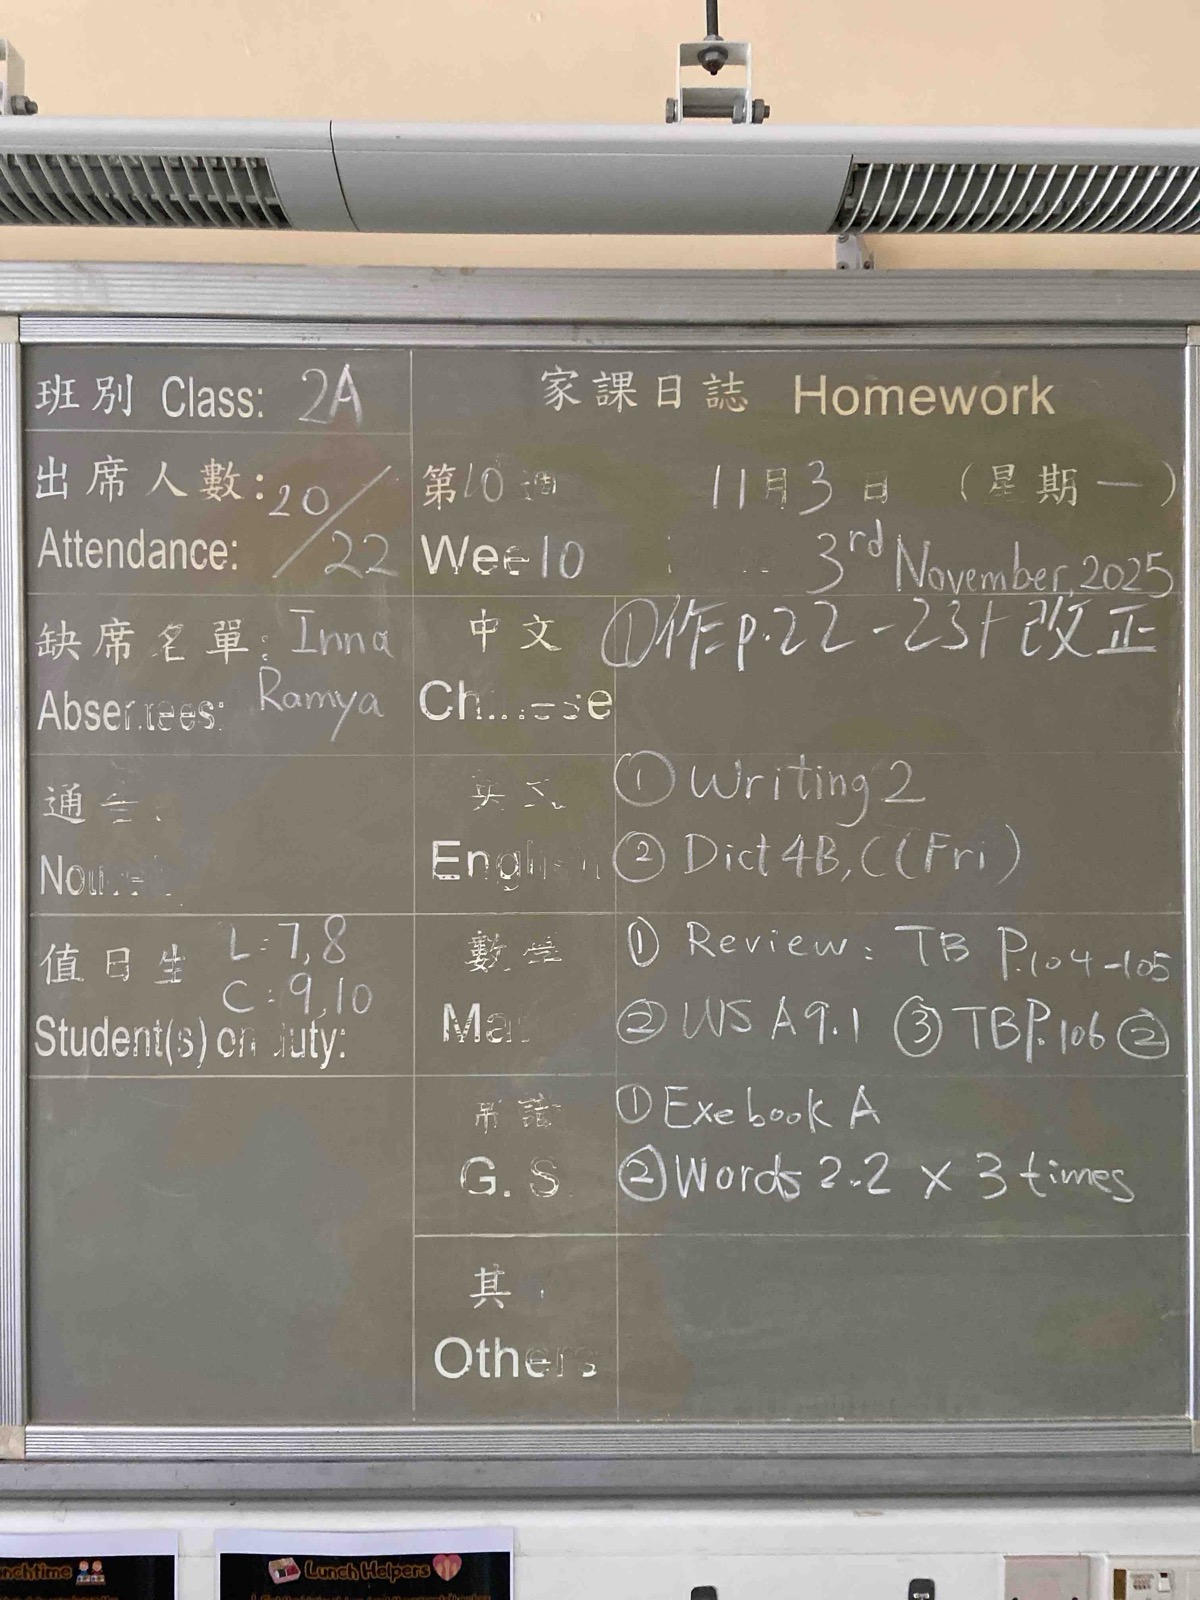 班別 Class: 2A
家課日誌 Homework
出席人數: 20/22
Attendance:
第10週 11月3日 (星期一)
Wee 10 3rd November, 2025
缺席名單: Inna
Absentees: Ramya
中文 ①作p.22-23+改正
Chinese
通告
英文 ① Writing 2
English ② Dict 4B, C (Fri)
值日生 L: 7,8
C: 9,10
Student(s) on duty:
數學 ① Review: TB P.104-105
Ma ② WS A9.1 ③ TB P.106 ②
常識 ① Exebook A
G. S. ② Words 2.2 × 3 times
其
Others
Lunch Helpers